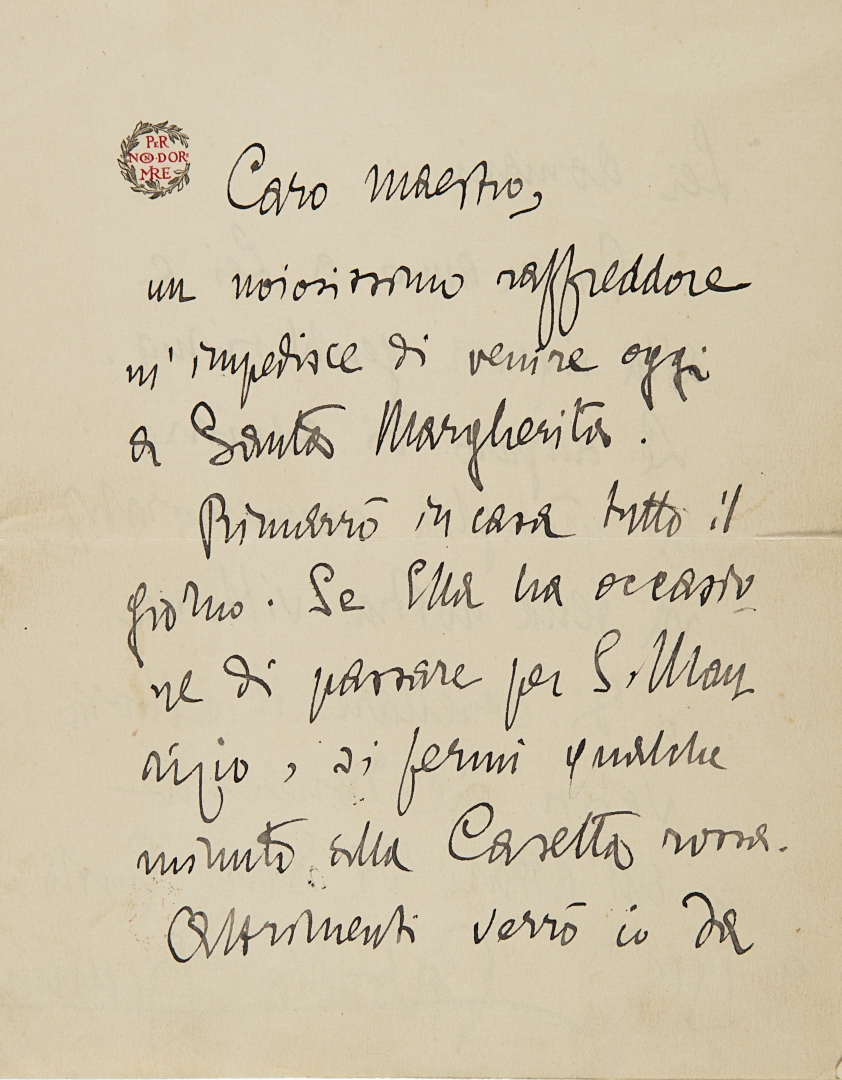 PER
NON DOR
MIRE
Caro maestro,
un noiosissimo raffreddore
m'impedisce di venire oggi
a Santa Margherita.
Rimarrò in casa tutto il
giorno. Se Ella ha occasio
ne di passare per S. Mau
rizio, si fermi qualche
minuto alla Casetta rossa.
Altrimenti verrò io da